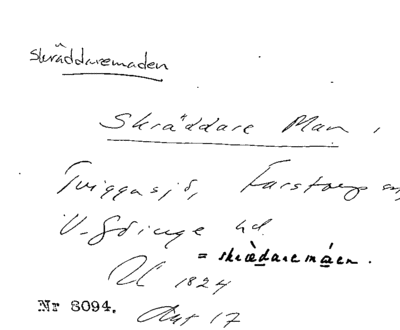 Skräddaremaden
Skräddare Man,
Tviggasjö, Farstorps
V. Göinge hd.
= skræ̀daremáen.
1824
Akt 17
Nr 8094.